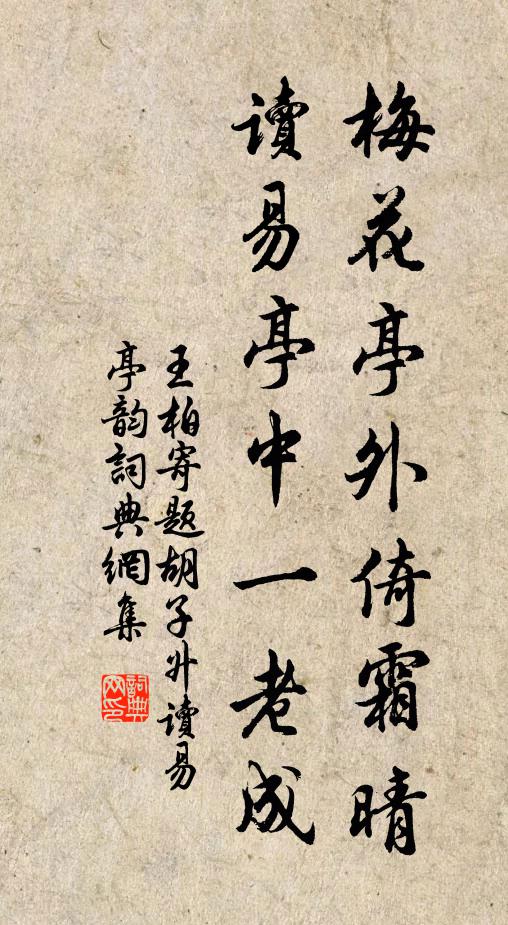 梅花亭外倚霜晴
讀易亭中一老成
王柏寄题胡子升讀易
亭韵詞典網集
詞典
网印